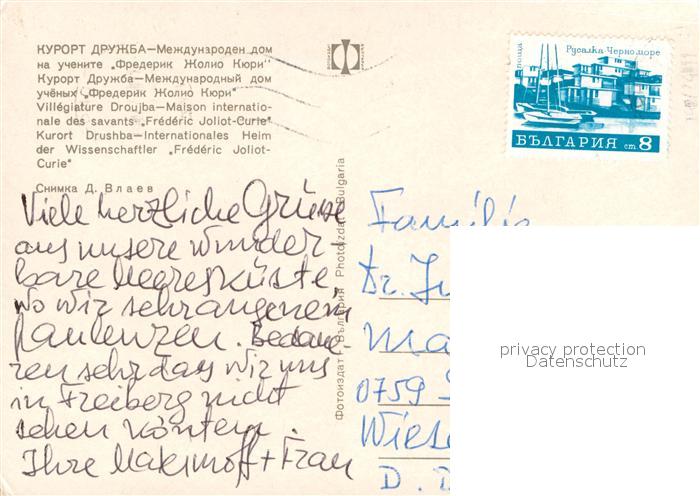 КУРОРТ ДРУЖБА—Международен дом
на учените „Фредерик Жолио Кюри"
Курорт Дружба—Международный дом
учёных „Фредерик Жолио Кюри"
Villégiature Droujba—Maison internatio-
nale des savants „Frédéric Joliot-Curie"
Kurort Drushba—Internationales Heim
der Wissenschaftler „Frédéric Joliot-
Curie"
Снимка Д. Влаев
Viele herzliche Grüsse
aus unsere wunder-
bare Meeresküste
wo wir sehr angenehm
faulenzen. Bedaue-
ren sehr das wir uns
in Freiberg nicht
sehen konten.
Ihre Makimoff + Frau
Фотоиздат, България Photoizdat, Bulgaria
поща
Русалка-Черно море
БЪЛГАРИЯ ст. 8
Familie
Dr. Ju
Ma
0759
Wiese
D. D.
privacy protection
Datenschutz